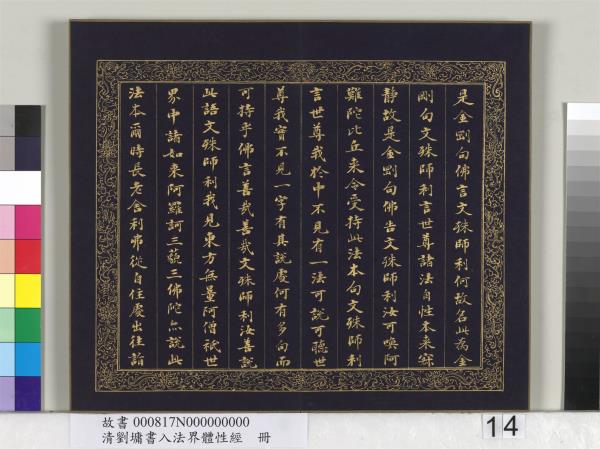 是金剛句佛言文殊師利何故名此為金
剛句文殊師利言世尊諸法自性本来寂
靜故是金剛句佛告文殊師利汝可喚阿
難陀比丘来令受持此法本句文殊師利
言世尊我於中不見有一法可說可聽世
尊我實不見一字有具說處何有多句而
可持乎佛言善哉善哉文殊師利汝善說
此語文殊師利我見東方無量阿僧祇世
界中諸如来阿羅訶三藐三佛陀亦說此
法本爾時長老舍利弗從自住處出往詣
故書 000817N000000000
清劉墉書入法界體性經 冊
14